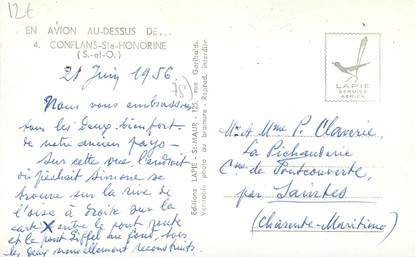 12€
EN AVION AU-DESSUS DE...
4. CONFLANS-Ste-HONORINE
(S.-et-O.)
(78)
21 Juin 1956
Nous vous embrassons
sur les deux
de notre ancien pays -
Sur cette vue l'endroit
où pêchait Simone se
trouve sur la rive de
l'oise à droite sur la
carte X entre le pont route
et le pont Eiffel au fond, tous
les deux nouvellement reconstruits.
Editions LAPIE - St-MAUR - 123, rue Garibaldi
Véritable photo au bromure - Reprod. interdite
LAPIE
SERVICE
AÉRIEN
Mr et Mme P. Claverie,
La Pichauderie
Cne de Pontcouverte,
par Saintes
(Charente-Maritime)